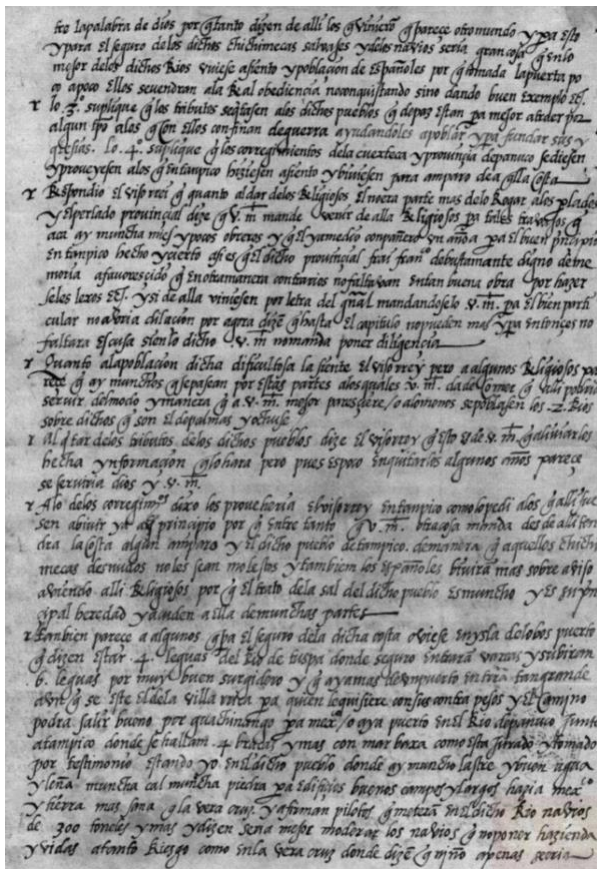 tro la palabra de dios por q̃ tanto dizen de alli los q̃ vinierõ q̃ parece otro mundo y pa esto
y para el seguro delos dichos chichimecas salvajes y delos navios seria gran cosa q̃ en lo
mejor delos dichos Rios uviese asiento y poblaçion de españoles por q̃ tomada la puerta po
co a poco Ellos se vendran ala Real obediencia no conquistando sino dando buen exemplo etc.
r lo .3º. suplique q̃ los tributos se q̃tasen alos dichos pueblos q̃ de paz estan pa mejor atraer por
algun tpo alos q̃ con Ellos confinan de guerra ayudandoles a poblar y pa fundar sus y
glesias. lo .4. suplique q̃ los corregimientos dela cuexteca y provinçia de panuco se diesen
y proveyesen alos q̃ en tanpico hiziesen asiento y biviesen para amparo de aq̃lla costa
r Respondio el visorrei q̃ quanto al dar delos Religiosos el no era parte mas delo Rogar alos plados
y el perlado provinçial dize q̃ v. m̃ mande venir de alla Religiosos pa tales travajos q̃
aca ay muncha mies y pocos obreros y q̃ el ya me dio conpañero un año pa el buen prinçipio
en tanpico hecho y cierto asi es q̃ el dicho provinçial frai franco de bustamante digno de me
moria a favoresçido q̃ en otra manera contrarios no faltavan en tan buena obra por hazer
seles lexos etc. y si de alla viniesen por letra del gñal mandandoselo v. m̃. pa el bien parti
cular no avria dilaçion por agora dizẽ q̃ hasta el capitulo no pueden mas y pa entonçes no
faltara escusa si en lo dicho v. m̃ no manda poner diligençia
r Quanto ala poblaçion dicha dificultosa la siente el visorrey pero a algunos Religiosos pa
reçe q̃ ay munchos q̃ se pasean por estas partes alos quales v. m̃. da de comer q̃ alli podriã
servir del modo y manera q̃ a v. m̃. mejor paresçiere / o alomenos se poblasen los .2. Rios
sobre dichos q̃ son el de palmas y ochuse
r al q̃tar delos tributos delos dichos pueblos dize el visorrey q̃ esto es de v. m̃. q̃
hecha ynformaçion q̃ lo hara pero pues es poco en quitarlos algunos años pareçe
se serviria dios y v. m̃.
r A lo delos corregimos dixo los proveheria el visorrey en tanpico como lo pedi alos q̃ alli fue
sen a bivir y a principio por q̃ entre tanto q̃ v. m̃. otra cosa manda desde alli ten
dra la costa algun amparo y el dicho pueblo de tanpico. de manera q̃ aquellos chichi
mecas desnudos no les sean molestos y tambien los españoles biviran mas sobre aviso
aviendo alli Religiosos por q̃ el trato dela sal del dicho pueblo es muncho y es su prin
cipal heredad y acuden a ella de munchas partes
r tanbien parece a algunos q̃ pa el seguro dela dicha costa oviese en ysla de lobos puerto
q̃ dizen estar .4. leguas del Rio de tuspa donde seguro entrarã varcas y subiran
6. leguas por muy buen surgidero y q̃ aya mas de un puerto en trra tan grande
aunq̃ se este el dela villa rica pa quien le quisiere con sus contra pesos y el camino
podra salir bueno por guachinango pa mexco / o aya puerto en el Rio de panuco junto
a tampico donde se hallan .4. braças y mas con mar baxa como esta jurado y tomado
por testimonio estando yo en el dicho pueblo donde ay muncho lastre y buen agua
y leña muncha cal muncha piedra pa edifiçios buenos campos y largos hazia mexco
y tierra mas sana q̃ la vera cruz y afirman pilotos q̃ meteran en el dicho Rio navios
de 300 toneles y mas y dizen seria mejor moderar los navios q̃ no poner hazienda
y vidas a tanto Riesgo como en la vera cruz donde dizẽ q̃ apenas